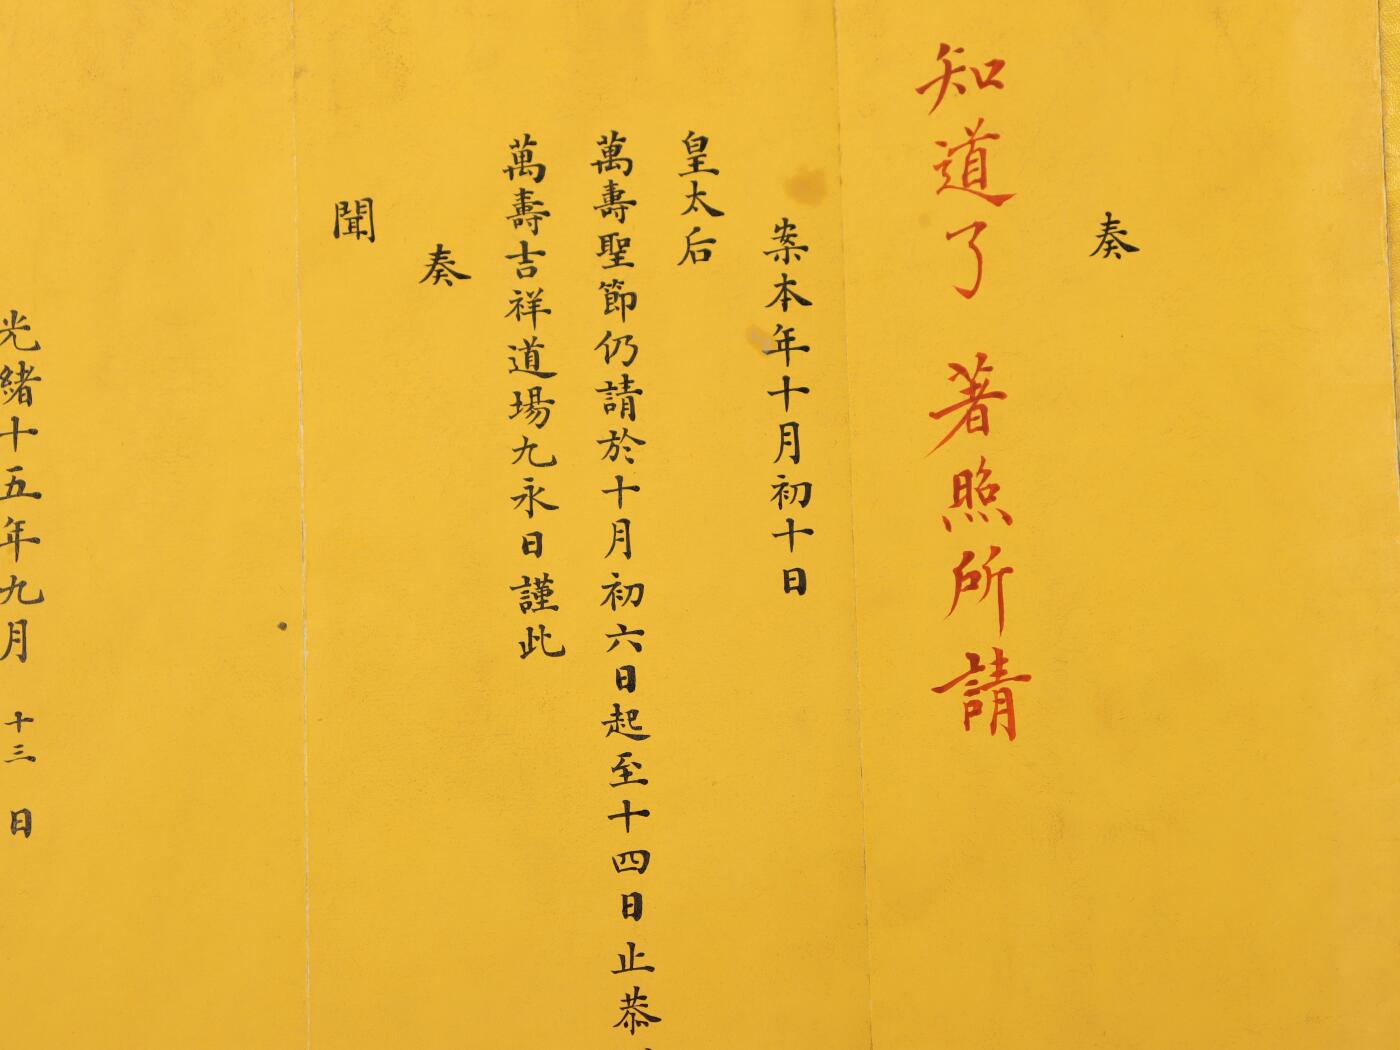 奏
知道了 著照所請
案本年十月初十日
皇太后
萬壽聖節仍請於十月初六日起至十四日止恭
萬壽吉祥道場九永日謹此
奏
聞
光緒十五年九月 十三 日